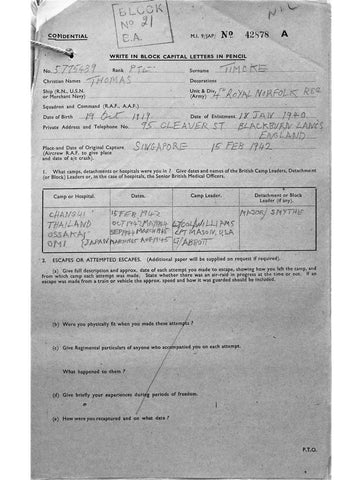 BLOCK
Nº 21
E.A.
NIL
CONFIDENTIAL
M.I. 9/JAP/ Nº 42878 A
WRITE IN BLOCK CAPITAL LETTERS IN PENCIL
No. 5775439 Rank PTE Surname TIMOKE
Christian Names THOMAS Decorations
Ship (R.N., U.S.N. or Merchant Navy) Unit & Div. (Army) ROYAL NORFOLK REG
Squadron and Command (R.A.F., A.A.F.)
Date of Birth 19 Oct 1919 Date of Enlistment 18 JAN 1940
Private Address and Telephone No. 95 CLEAVER ST BLACKBURN LANCS
ENGLAND
Place and Date of Original Capture SINGAPORE 15 FEB 1942
(Aircrew R.A.F. to give place and date of a/c crash).
1. What camps, detachments or hospitals were you in? Give dates and names of the British Camp Leaders, Detachment
(or Block) Leaders or, in the case of hospitals, the Senior British Medical Officers.
Camp or Hospital. Dates. Camp Leader. Detachment or Block Leader (if any).
CHANGHI 15 FEB 1942 MAJOR SMYTHE
THAILAND OCT 1942 MAY 1944 LT COL WILLIAMS
OSSAKA SEP 1944 MARCH 1945 CPT MASON, USA
OMI JAPAN MARCH 1945 AUG 1945 LT ABBOTT
2. ESCAPES OR ATTEMPTED ESCAPES. (Additional paper will be supplied on request if required).
(a) Give full description and approx. date of each attempt you made to escape, showing how you left the camp, and
from which camp each attempt was made. State whether there was an air-raid in progress at the time or not. If an
escape was made from a train or vehicle the approx. speed and how it was guarded should be included.
(b) Were you physically fit when you made these attempts?
(c) Give Regimental particulars of anyone who accompanied you on each attempt.
What happened to them?
(d) Give briefly your experiences during periods of freedom.
(e) How were you recaptured and on what date?
P.T.O.